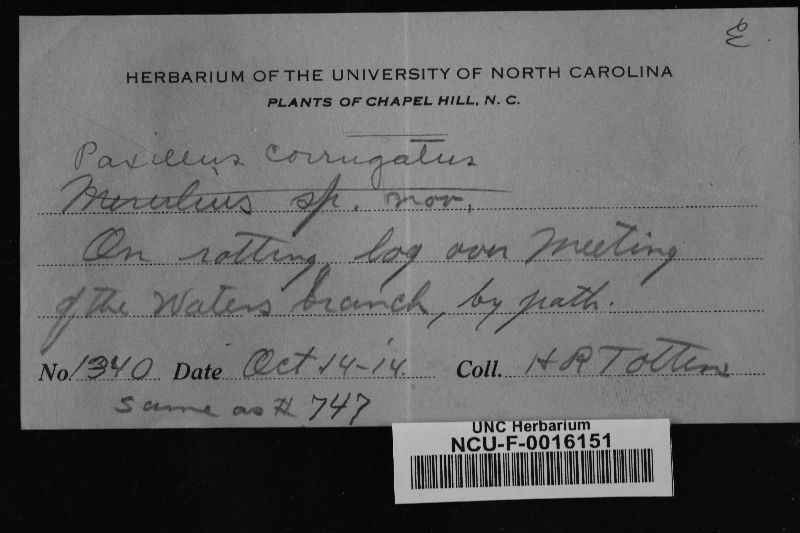 E
HERBARIUM OF THE UNIVERSITY OF NORTH CAROLINA
PLANTS OF CHAPEL HILL, N. C.
Paxillus corrugatus
Merulius sp. nov.
On rotting log over Meeting
of the Waters branch, by path.
No. 1340 Date Oct 14-14 Coll. H R Totten
Same as # 747
UNC Herbarium
NCU-F-0016151